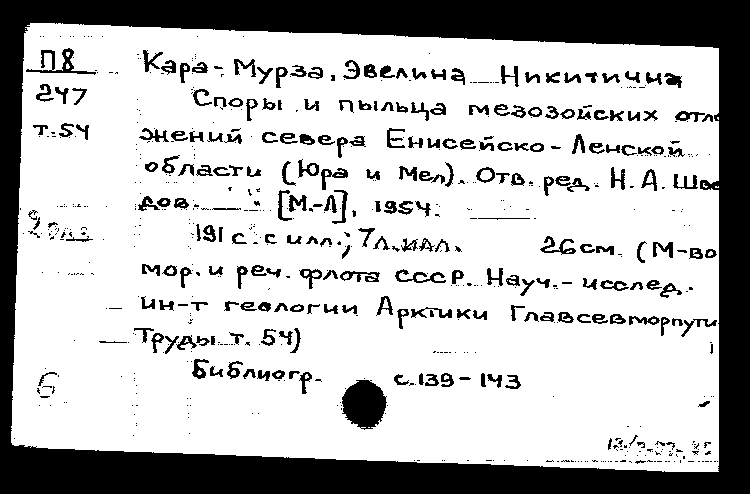 П8
247
т.54
2 экз
6
Кара-Мурза, Эвелина Никитична
Споры и пыльца мезозойских отло
жений севера Енисейско-Ленской
области (Юра и Мел). Отв. ред. Н.А. Шве
дов. [М.-Л], 1954.
191 с. с илл.; 7 л. илл. 26 см. (М-во
мор. и реч. флота СССР. Науч.-исслед.
ин-т геологии Арктики Главсевморпути
Труды т. 54)
Библиогр. с. 139-143